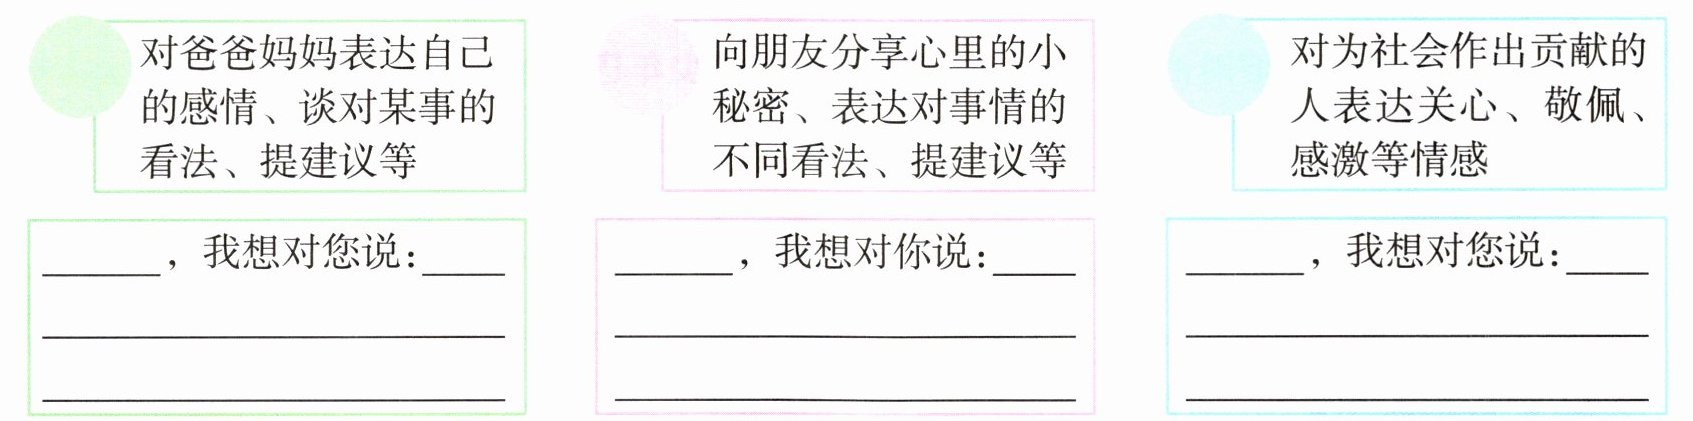 对爸爸妈妈表达自己
的感情、谈对某事的
看法、提建议等
______，我想对您说：____
向朋友分享心里的小
秘密、表达对事情的
不同看法、提建议等
______，我想对你说：____
对为社会作出贡献的
人表达关心、敬佩、
感激等情感
______，我想对您说：____